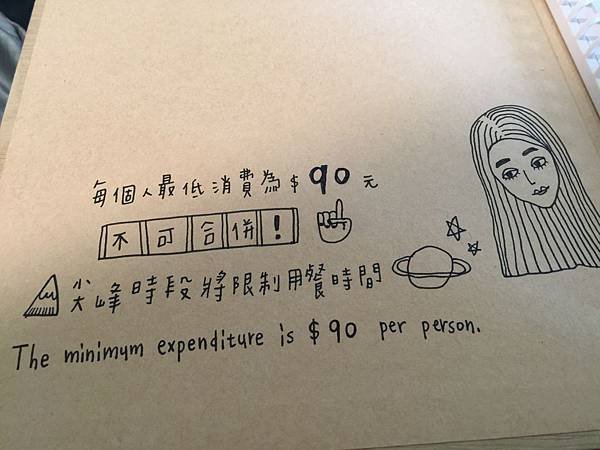 每個人最低消費為$90元
不可合併!
尖峰時段將限制用餐時間
The minimum expenditure is $90 per person.